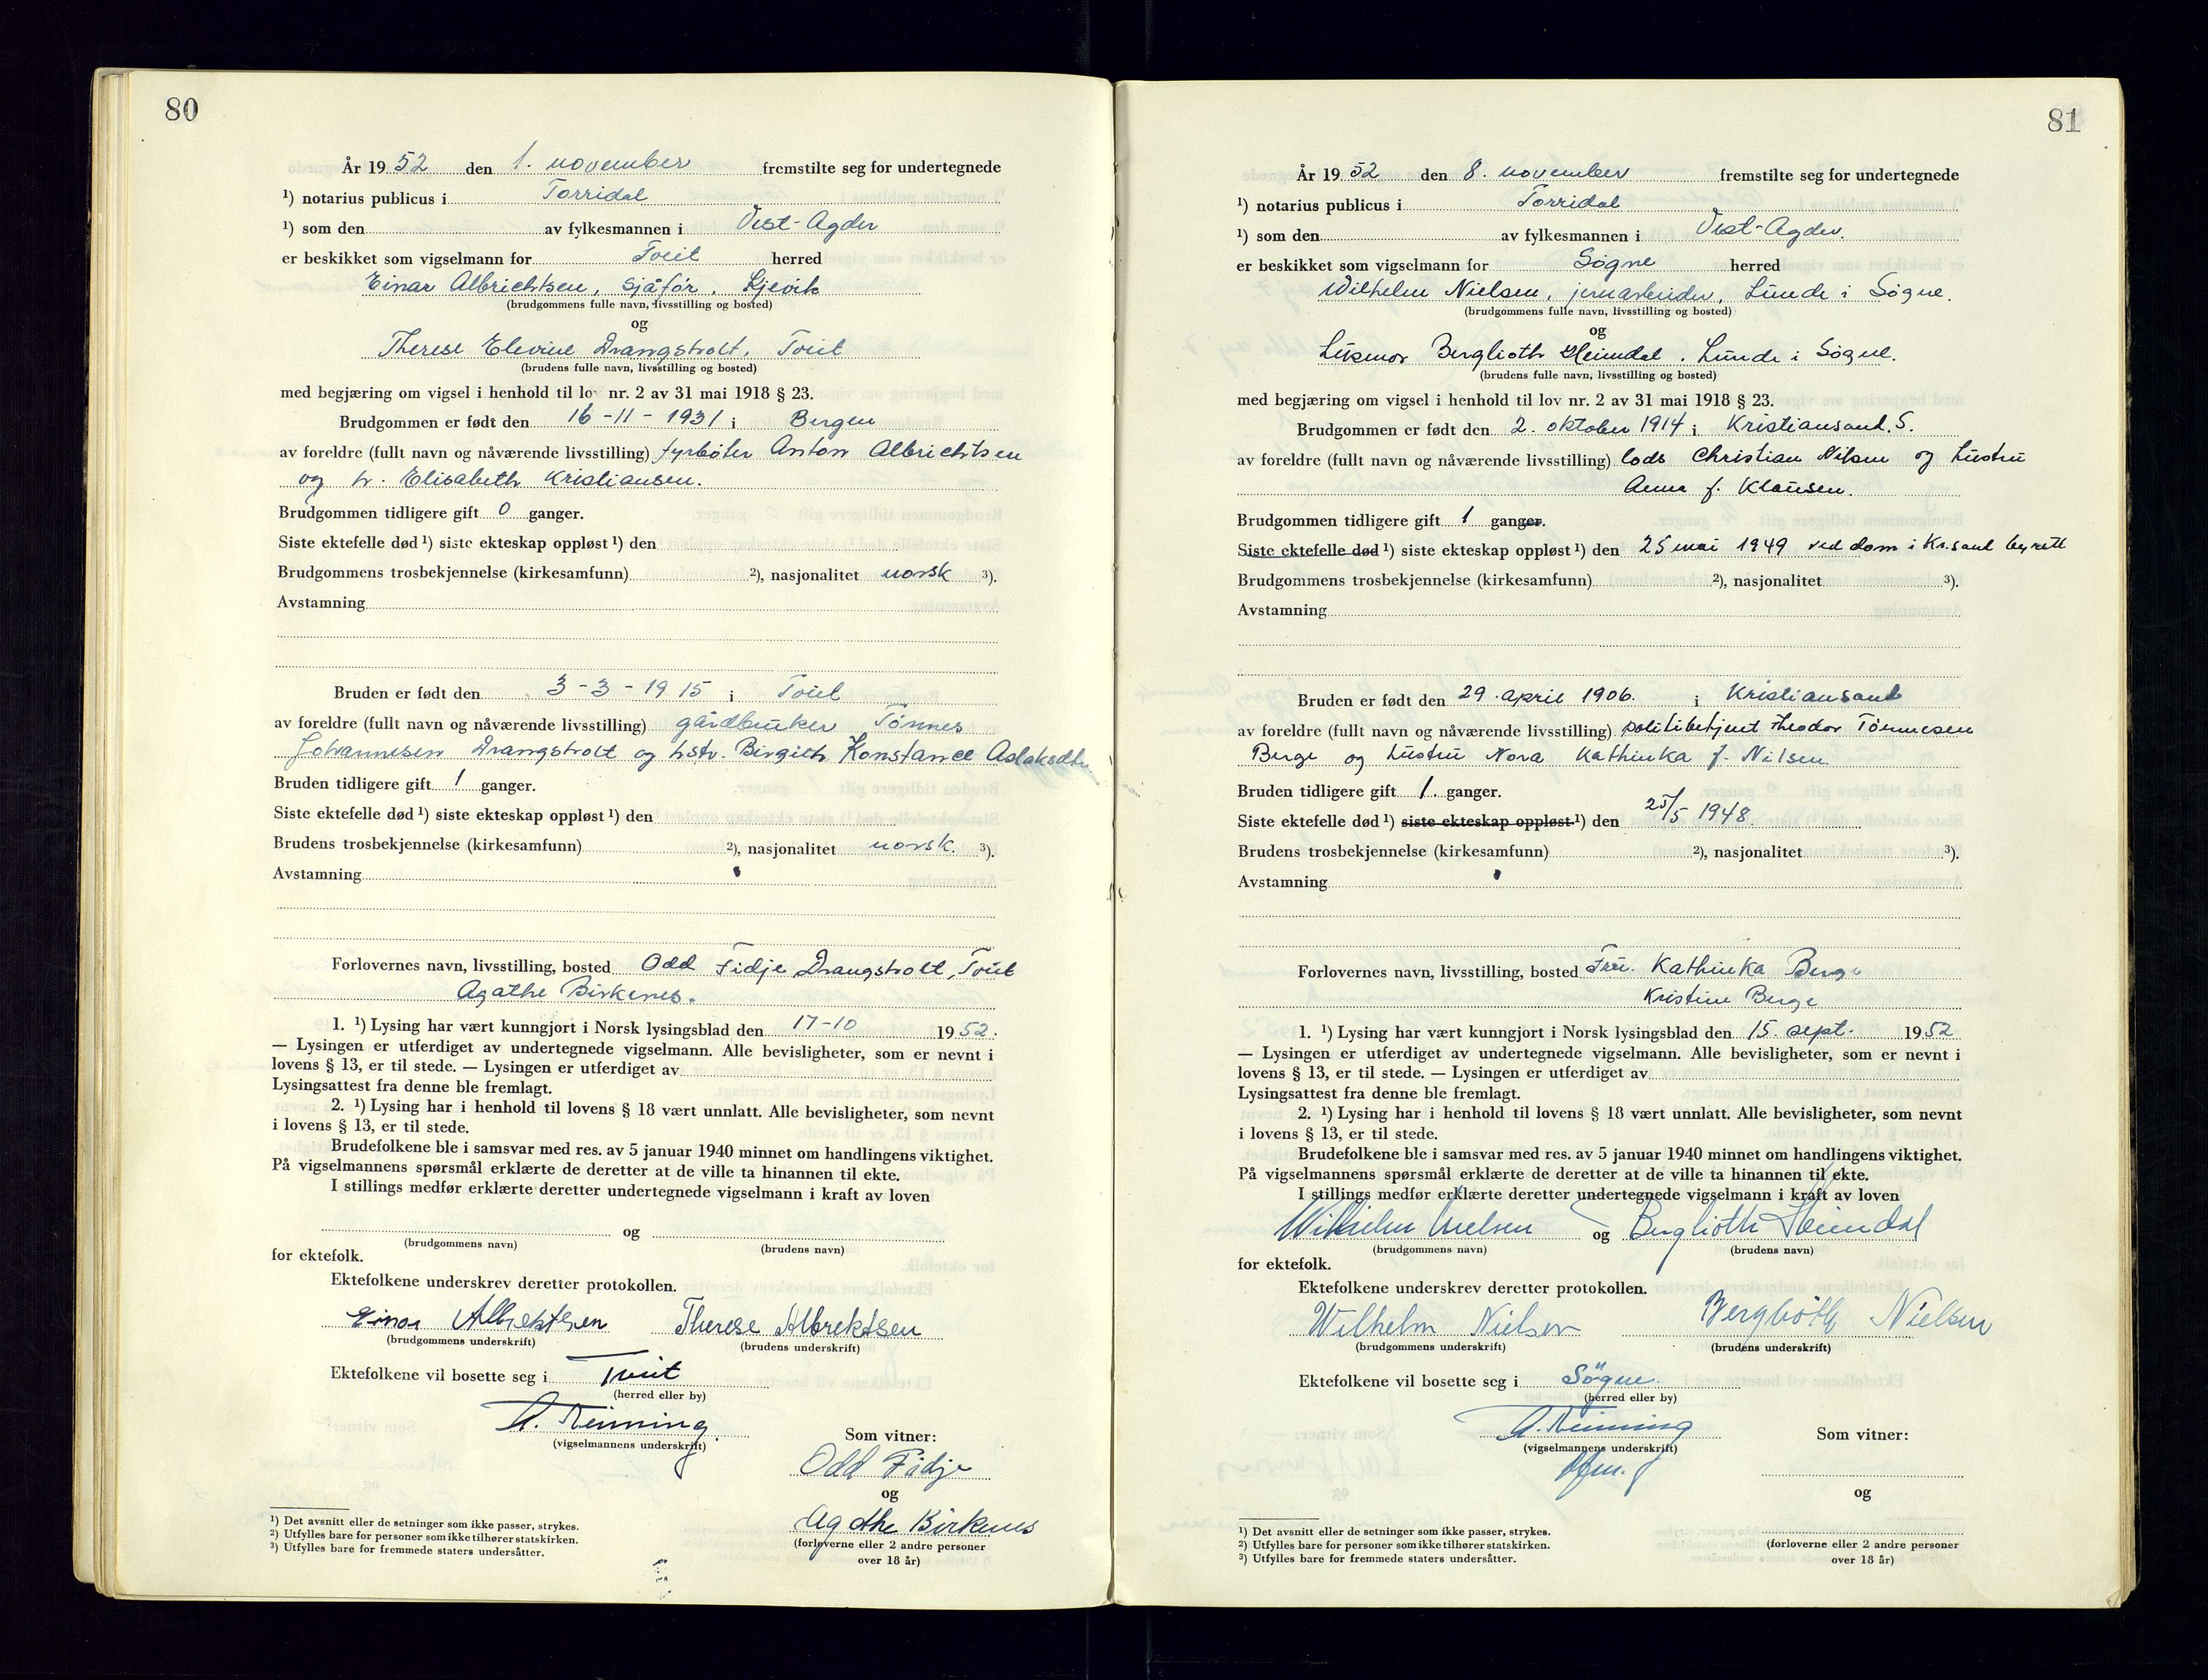 80
År 1952 den 1. november fremstilte seg for undertegnede
¹) notarius publicus i Torridal
¹) som den av fylkesmannen i Vest-Agder
er beskikket som vigselmann for Tveit herred
Einar Albrichtsen, sjåfør, Kjevik
(brudgommens fulle navn, livsstilling og bosted)
og
Therese Elevine Drangsholt, Tveit
(brudens fulle navn, livsstilling og bosted)
med begjæring om vigsel i henhold til lov nr. 2 av 31 mai 1918 § 23.
Brudgommen er født den 16-11-1931 i Bergen
av foreldre (fullt navn og nåværende livsstilling) fyrbøter Anton Albrichtsen
og h. Elisabeth Kristiansen.
Brudgommen tidligere gift 0 ganger.
Siste ektefelle død ¹) siste ekteskap oppløst ¹) den
Brudgommens trosbekjennelse (kirkesamfunn) ²), nasjonalitet norsk ³).
Avstamning
Bruden er født den 3-3-1915 i Tveit
av foreldre (fullt navn og nåværende livsstilling) gårdbruker Tønnes
Johannesen Drangsholt og hstr. Birgith Konstance Aslaksdtr
Bruden tidligere gift 1 ganger.
Siste ektefelle død ¹) siste ekteskap oppløst ¹) den
Brudens trosbekjennelse (kirkesamfunn) ²), nasjonalitet norsk. ³).
Avstamning
Forlovernes navn, livsstilling, bosted Odd Fidje Drangsholt, Tveit
Agathe Birkenes.
1. ¹) Lysing har vært kunngjort i Norsk lysingsblad den 17-10 1952.
— Lysingen er utferdiget av undertegnede vigselmann. Alle bevisligheter, som er nevnt i
lovens § 13, er til stede. — Lysingen er utferdiget av
Lysingsattest fra denne ble fremlagt.
2. ¹) Lysing har i henhold til lovens § 18 vært unnlatt. Alle bevisligheter, som nevnt
i lovens § 13, er til stede.
Brudefolkene ble i samsvar med res. av 5 januar 1940 minnet om handlingens viktighet.
På vigselmannens spørsmål erklærte de deretter at de ville ta hinannen til ekte.
I stillings medfør erklærte deretter undertegnede vigselmann i kraft av loven
og
(brudgommens navn) (brudens navn)
for ektefolk.
Ektefolkene underskrev deretter protokollen.
Einar Albrektsen Therese Albrektsen
(brudgommens underskrift) (brudens underskrift)
Ektefolkene vil bosette seg i Tveit
(herred eller by)
A. Reinning
(vigselmannens underskrift)
Som vitner:
Odd Fidje
og
Agathe Birkenes
(forloverne eller 2 andre personer
over 18 år)
¹) Det avsnitt eller de setninger som ikke passer, strykes.
²) Utfylles bare for personer som ikke tilhører statskirken.
³) Utfylles bare for fremmede staters undersåtter.
81
År 1952 den 8. november fremstilte seg for undertegnede
¹) notarius publicus i Torridal
¹) som den av fylkesmannen i Vest-Agder.
er beskikket som vigselmann for Søgne herred
Wilhelm Nielsen, jernarbeider, Lunde i Søgne.
(brudgommens fulle navn, livsstilling og bosted)
og
Berglioth Heimdal. Lunde i Søgne.
(brudens fulle navn, livsstilling og bosted)
med begjæring om vigsel i henhold til lov nr. 2 av 31 mai 1918 § 23.
Brudgommen er født den 2. oktober 1914 i Kristiansand. S.
av foreldre (fullt navn og nåværende livsstilling) lods Christian Nilsen og hustru
Anna f. Klausen.
Brudgommen tidligere gift 1 ganger.
Siste ektefelle død ¹) siste ekteskap oppløst ¹) den 25 mai 1949 ved dom i Kr.sand byrett
Brudgommens trosbekjennelse (kirkesamfunn) ²), nasjonalitet ³).
Avstamning
Bruden er født den 29. april 1906. i Kristiansand
av foreldre (fullt navn og nåværende livsstilling) politibetjent Theodor Tönnesen
Berge og hustru Nora Kathinka f. Nilsen.
Bruden tidligere gift 1. ganger.
Siste ektefelle død ¹) siste ekteskap oppløst ¹) den 25/5 1948.
Brudens trosbekjennelse (kirkesamfunn) ²), nasjonalitet ³).
Avstamning
Forlovernes navn, livsstilling, bosted Fru. Kathinka Berge
Kristine Berge
1. ¹) Lysing har vært kunngjort i Norsk lysingsblad den 15. sept. 1952
— Lysingen er utferdiget av undertegnede vigselmann. Alle bevisligheter, som er nevnt i
lovens § 13, er til stede. — Lysingen er utferdiget av
Lysingsattest fra denne ble fremlagt.
2. ¹) Lysing har i henhold til lovens § 18 vært unnlatt. Alle bevisligheter, som nevnt
i lovens § 13, er til stede.
Brudefolkene ble i samsvar med res. av 5 januar 1940 minnet om handlingens viktighet.
På vigselmannens spørsmål erklærte de deretter at de ville ta hinannen til ekte.
I stillings medfør erklærte deretter undertegnede vigselmann i kraft av loven
Wilhelm Nielsen og Berglioth Heimdal
(brudgommens navn) (brudens navn)
for ektefolk.
Ektefolkene underskrev deretter protokollen.
Wilhelm Nielsen Berglioth Nielsen
(brudgommens underskrift) (brudens underskrift)
Ektefolkene vil bosette seg i Søgne.
(herred eller by)
A. Reinning
(vigselmannens underskrift)
Som vitner:
og
(forloverne eller 2 andre personer
over 18 år)
¹) Det avsnitt eller de setninger som ikke passer, strykes.
²) Utfylles bare for personer som ikke tilhører statskirken.
³) Utfylles bare for fremmede staters undersåtter.